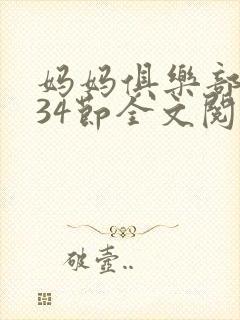 妈妈俱樂部
34節全文閱
破壺..